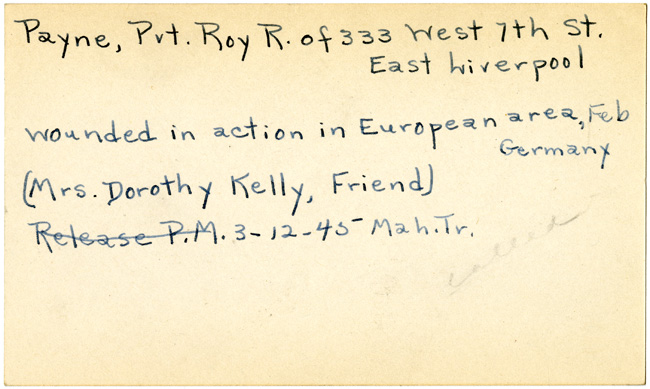 Payne, Pvt. Roy R. of 333 West 7th St.
East Liverpool
wounded in action in European area, Feb
Germany
(Mrs. Dorothy Kelly, Friend)
Release P.M. 3-12-45 Mah. Tr.
called